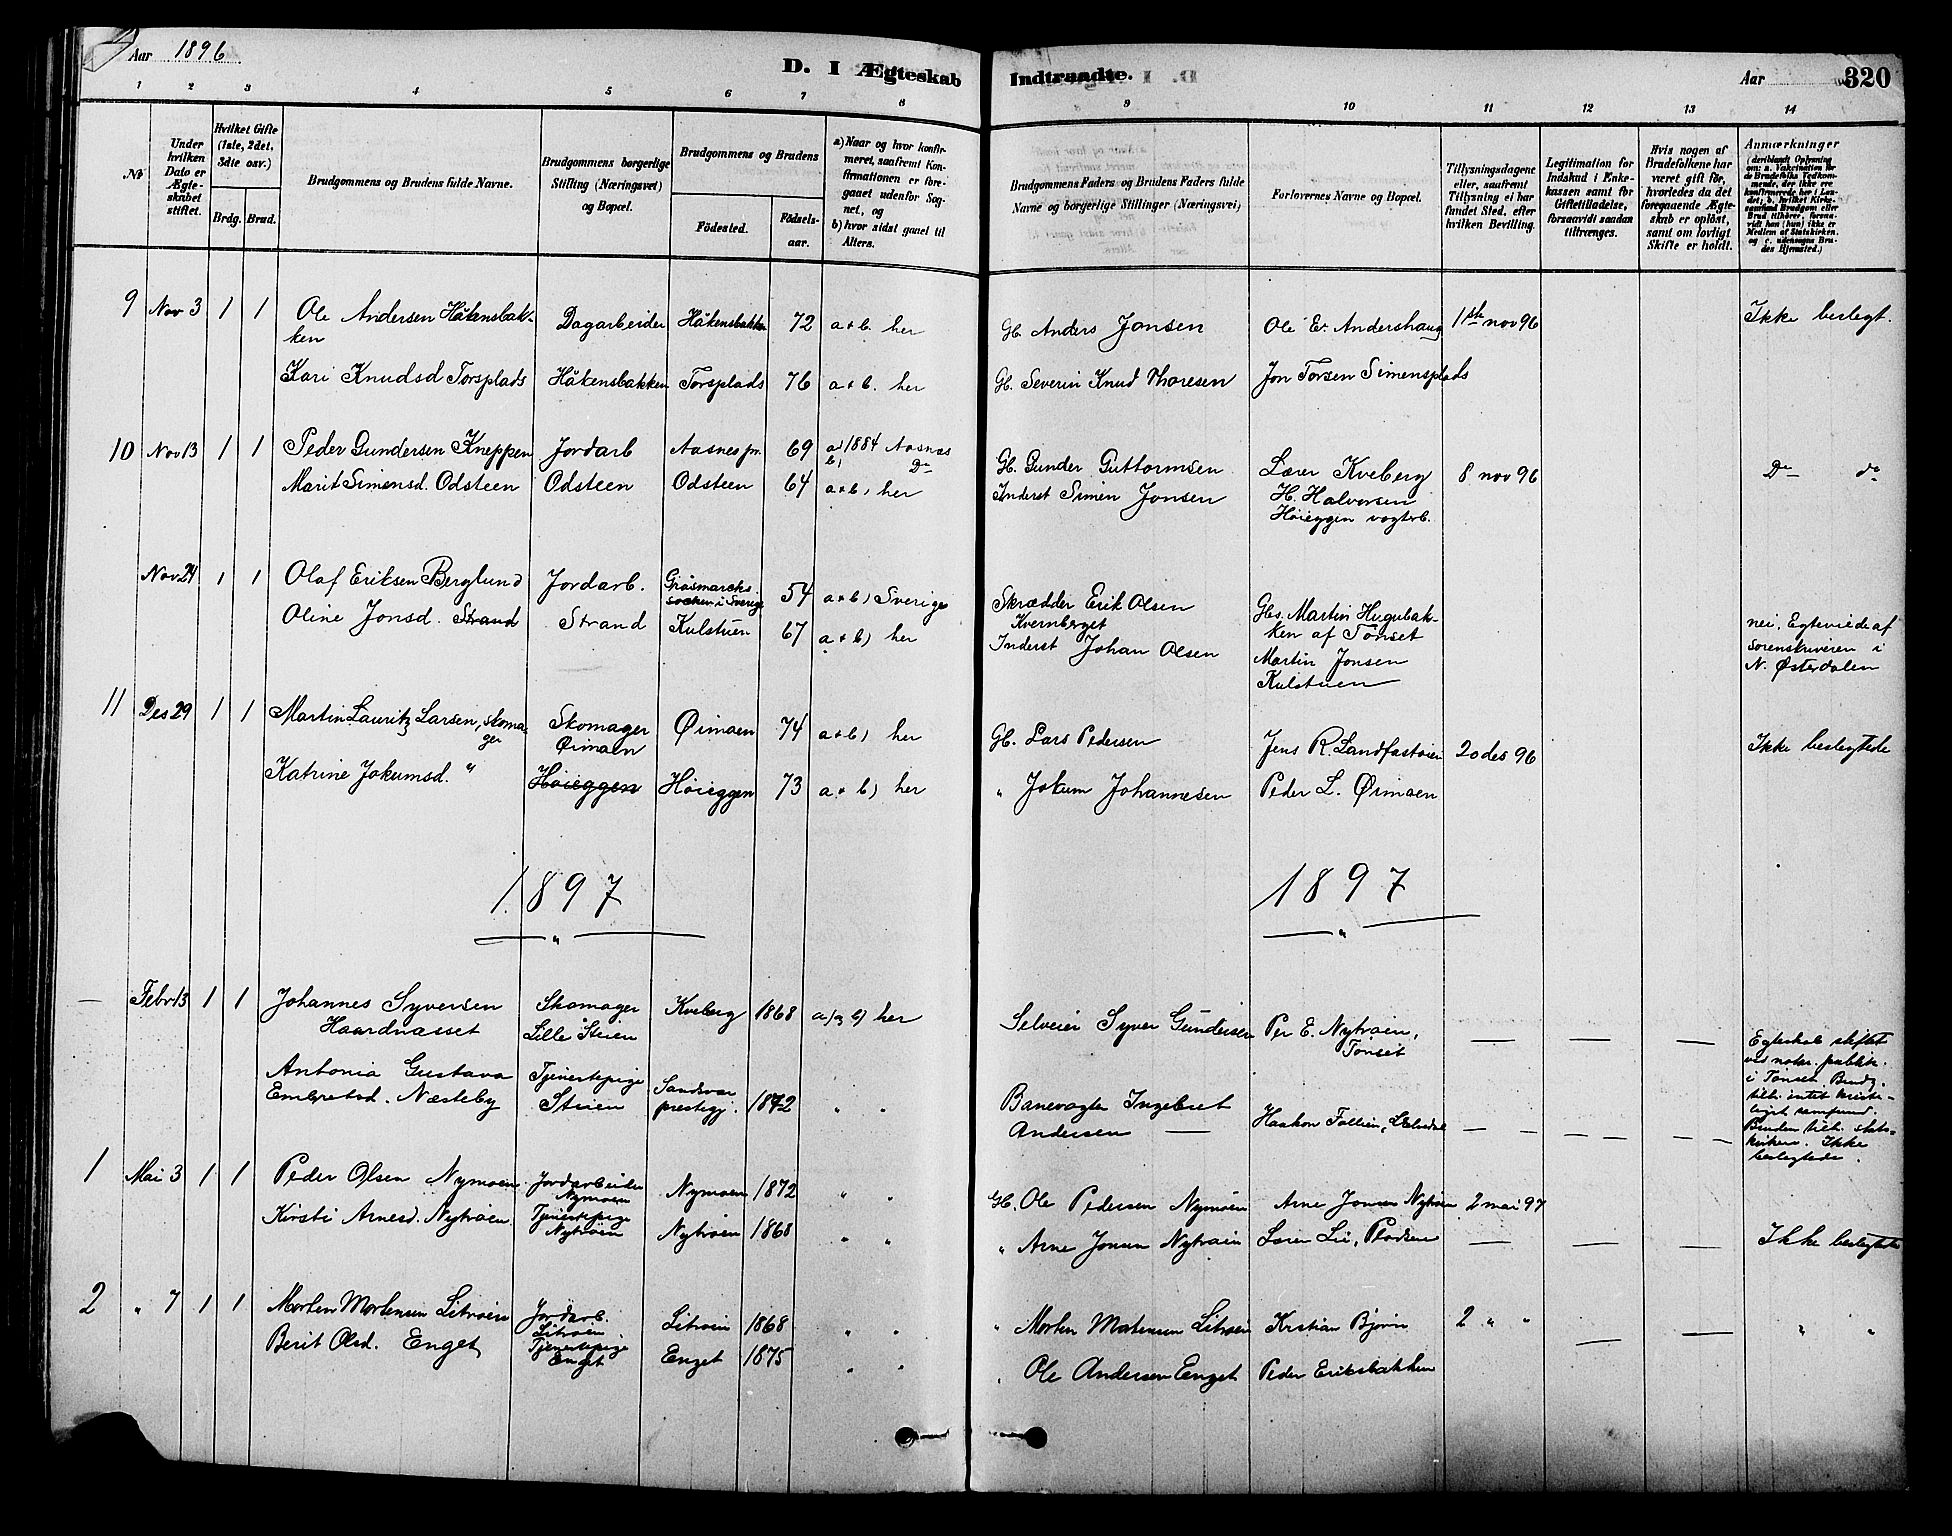 Aar 1896.
D. I Ægteskab
Indtraadte.
Aar
320
1 2 3 4 5 6 7 8
9 10 11 12 13 14
No
Under hvilken Dato er Ægteskabet stiftet.
Hvilket Gifte (1ste, 2det, 3die osv.)
Brdg. Brud.
Brudgommens og Brudens fulde Navne.
Brudgommens borgerlige Stilling (Næringsvei) og Bopæl.
Brudgommens og Brudens
Födested.
Födselsaar.
a) Naar og hvor konfirmeret, saafremt Konfirmationen er foregaaet udenfor Sognet, og
b) hvor sidst gaaet til Alters.
Brudgommens Faders og Brudens Faders fulde Navne og borgerlige Stillinger (Næringsvei)
Forlovernes Navne og Bopæl.
Tillysningsdagene eller, saafremt Tillysning ei har fundet Sted, efter hvilken Bevilling.
Legitimation for Indskud i Enkekassen samt for Giftetilladelse, forsaavidt saadan tiltrænges.
Hvis nogen af Brudefolkene har været gift før, hvorledes da det foregaaende Ægteskab er oplöst, samt om lovligt Skifte er holdt.
Anmærkninger
(deriblandt Oplysning om: a. Vaksination for de Brudefolks Vedkommende, der ikke ere konfirmerede her i Landet; b. hvilket Kirkesamfund Brudgom eller Brud tilhörer, forsaavidt han (hun) ikke er Medlem af Statskirken, og c. udensogns Brudes Hjemsted.)
9 Nov 3 1 1 Ole Andersen Håkensbak- Dagarbeider Håkensbakken 72 a & b. her Gb. Anders Jonsen Ole E. Andershaug 1ste nov 96 Ikke beslegt.
ken
Kari Knudsd Torsplads Håkensbakken Torsplads 76 a & b. her Gb. Severin Knud Thoresen Jon Torsen Simensplads
10 Nov 13 1 1 Peder Gundersen Kneppen Jordarb Aasnes pr. 69 a) 1884 Aasnes Gb. Gunder Guttormsen Lærer Kveberg 8 nov 96 Do do
b) Do
Marit Simensd. Odsteen Odsteen Odsteen 64 a & b) her Inderst Simen Jonsen H. Halvorsen
Høieggen vogterb.
Nov 24 1 1 Olaf Eriksen Berglund Jordarb. Gräsmarcks 54 a & b) Sverige Skrædder Erik Olsen Gbs. Martin Hugubak-
socken i Sverige Kvernberget ken af Tønset
Oline Jonsd. Strand Strand Kulstuen 67 a & b) her Inderst Johan Olsen Martin Jonsen nei, Egteviede af
Kulstuen sorenskriveren i
N. Østerdalen
11 Des 29 1 1 Martin Lauritz Larsen, skoma- Skomager Øimoen 74 a & b) her Gb. Lars Pedersen Jens R. Landfastøien 20 des 96 Ikke beslegtede
ger Øimoen
Katrine Jokumsd. " Høieggen Høieggen 73 a & b) her " Jokum Johannesen Peder L. Øimoen
1897 1897
"
"
— Febr 13 1 1 Johannes Syversen Skomager Kveberg 1868 a) & b) her Selveier Syver Gundersen Per E. Nytrøen, — — —
Haardnæsset Lille Steien Tønset
Egteskab stiftet
ved notar. publik.
i Tønset. Brudg.
tilh. intet kriste-
ligt samfund.
Bruden tilh. stats-
kirken. Ikke
beslegtede.
Antonia Gustava Tjenestepige Sandsvær
Embretsd. Næsteby Steien prestegj. 1872 " " Banevogter Ingebret
Andersen — Haakon Follien, — — —
1 Mai 3 1 1 Peder Olsen Nymoen Jordarbeider Nymoen 1872 " " Gb. Ole Pedersen Nymoen Arne Jonsen Nytrøen 2 mai 97
Nymoen
Kirsti Arnesd. Nytrøen Tjenestepige Nytrøen 1868 " " " Arne Jonsen Nytrøen — — — Ikke beslegtede
Nytrøen
2 " 7 1 1 Morten Mortensen Litrøen Jordarb. Litrøen 1868 " " " Morten Mortensen Litrøen Kristian Bjørn 2 " " — — " "
Litrøen
Berit Olsd. Enget Tjenestepige Enget 1875 " " " Ole Andersen Enget Peder Eriksbakken
Enget